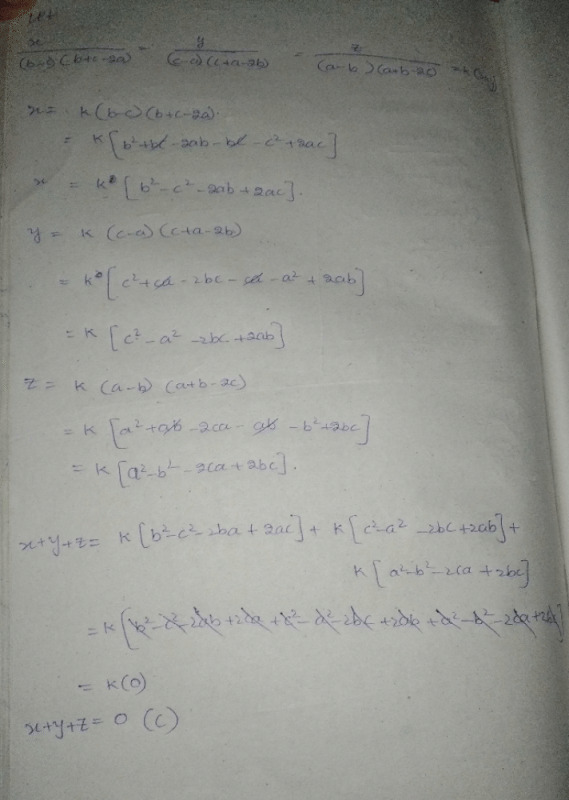 Let
x/(b-c)(b+c-2a) = y/(c-a)(c+a-2b) = z/(a-b)(a+b-2c) = k
x = k(b-c)(b+c-2a).
= k[b²+bc-2ab-bc-c²+2ac]
x = k[b²-c²-2ab+2ac].
y = k (c-a)(c+a-2b)
= k[c²+ca-2bc-ca-a²+2ab]
= k[c²-a²-2bc+2ab]
z = k (a-b) (a+b-2c)
= k[a²+ab-2ca-ab-b²+2bc]
= k[a²-b²-2ca+2bc].
x+y+z = k[b²-c²-2ba+2ac] + k[c²-a²-2bc+2ab] +
k[a²-b²-2ca+2bc]
= k[b²-c²-2ab+2ca+c²-a²-2bc+2ab+a²-b²-2ca+2bc]
= k(0)
x+y+z = 0 (C)